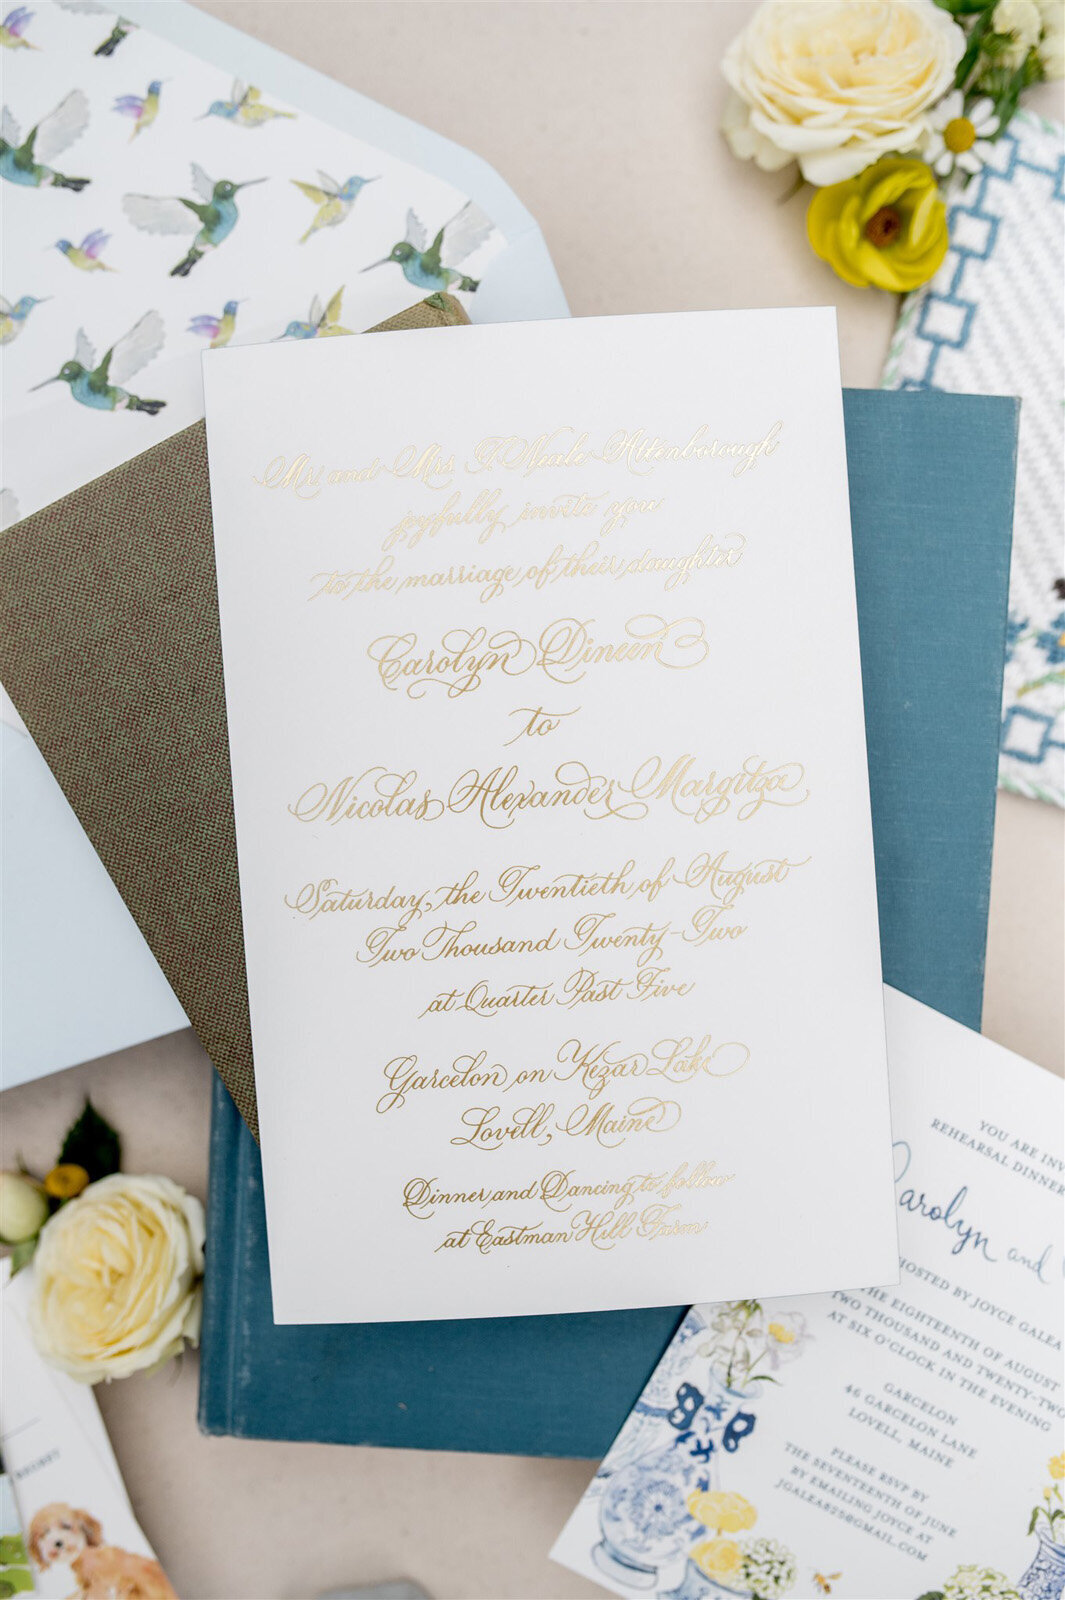 Mr. and Mrs. T. Neale Attenborough
joyfully invite you
to the marriage of their daughter
Carolyn Dineen
to
Nicolas Alexander Margitza
Saturday, the Twentieth of August
Two Thousand Twenty-Two
at Quarter Past Five
Garcelon on Kezar Lake
Lovell, Maine
Dinner and Dancing to follow
at Eastman Hill Farm
YOU ARE INV
REHEARSAL DINNER
Carolyn and
HOSTED BY JOYCE GALEA
THE EIGHTEENTH OF AUGUST
TWO THOUSAND AND TWENTY-TWO
AT SIX O'CLOCK IN THE EVENING
GARCELON
46 GARCELON LANE
LOVELL, MAINE
PLEASE RSVP BY
THE SEVENTEENTH OF JUNE
BY EMAILING JOYCE AT
JGALEA825@GMAIL.COM